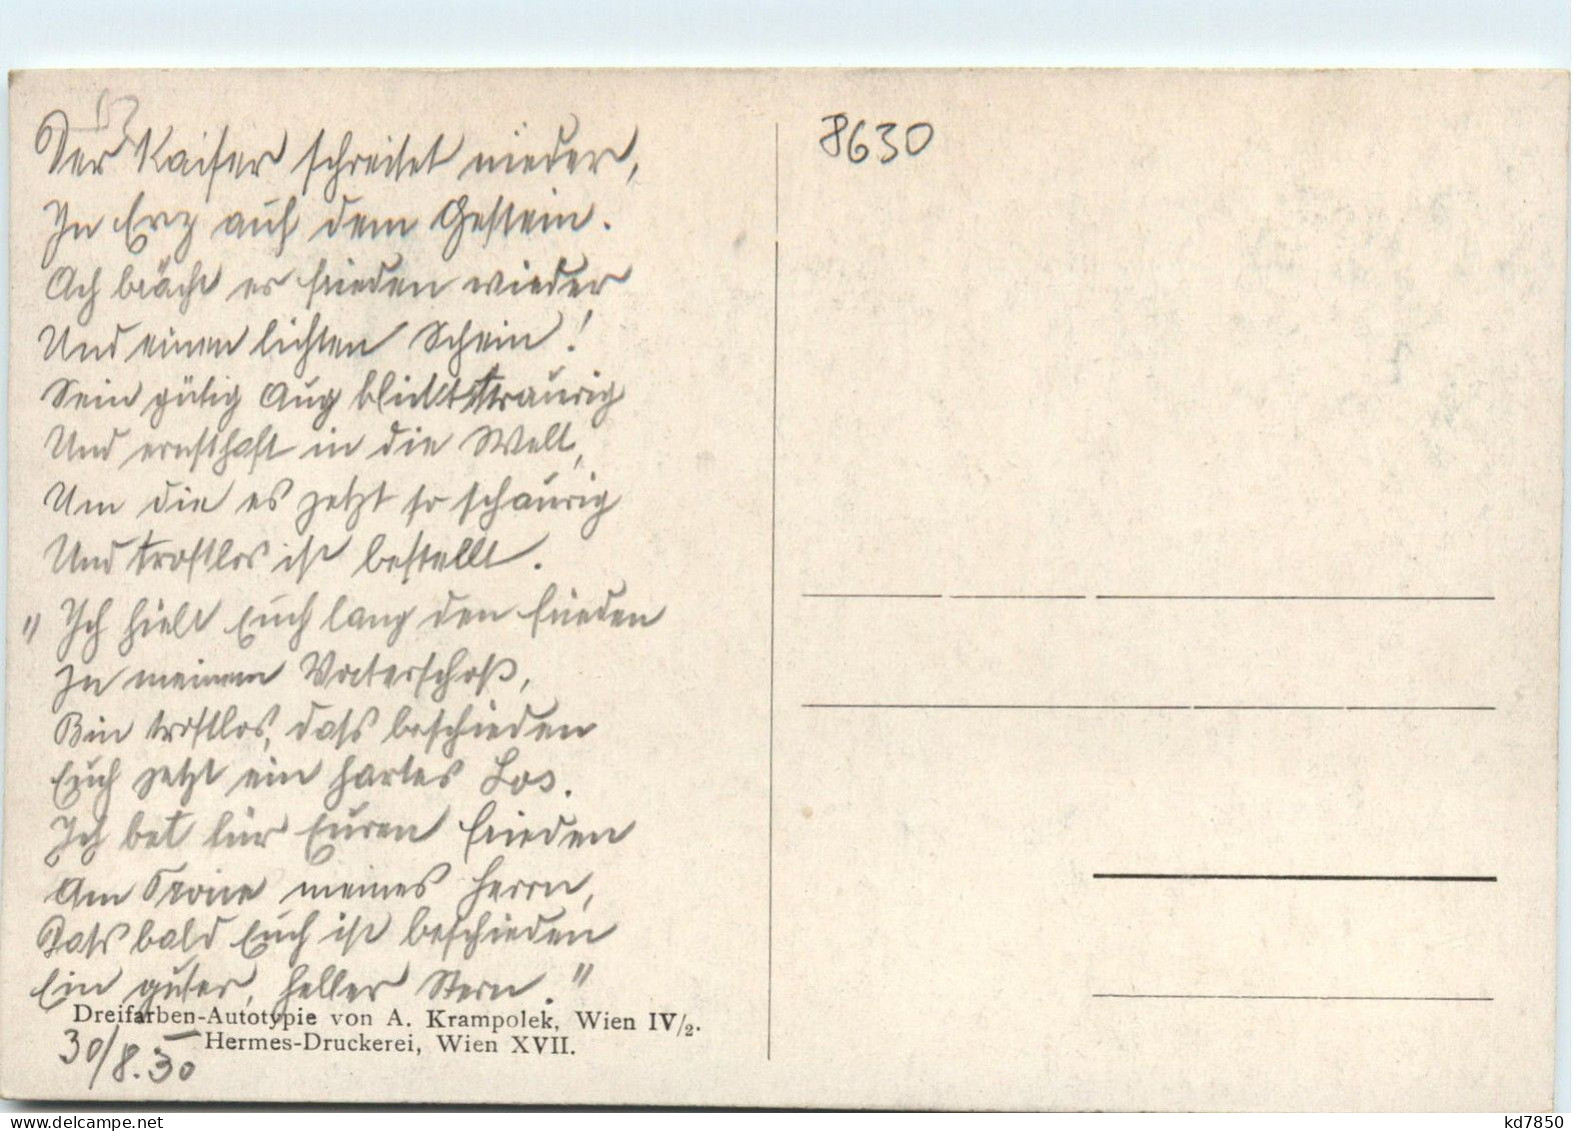 Der Kaiser schreitet nieder,
In Erz auf dem Gestein.
Ach brächt er Frieden wieder
Und einen lichten Schein!
Sein gütig Aug blickt traurig
Und ernsthaft in die Welt,
Um die es jetzt so schaurig
Und trostlos ist bestellt.
"Ich hielt Euch lang den Frieden
In meinem Vaterschoß,
Bin trostlos, dass beschieden
Euch jetzt ein hartes Los.
Ich bet für Euren Frieden
Am Trone meines Herrn,
Dass bald Euch ist beschieden
Ein guter, heller Stern."
Dreifarben-Autotypie von A. Krampolek, Wien IV/2.
Hermes-Druckerei, Wien XVII.
30/8.30
8630
kd7850